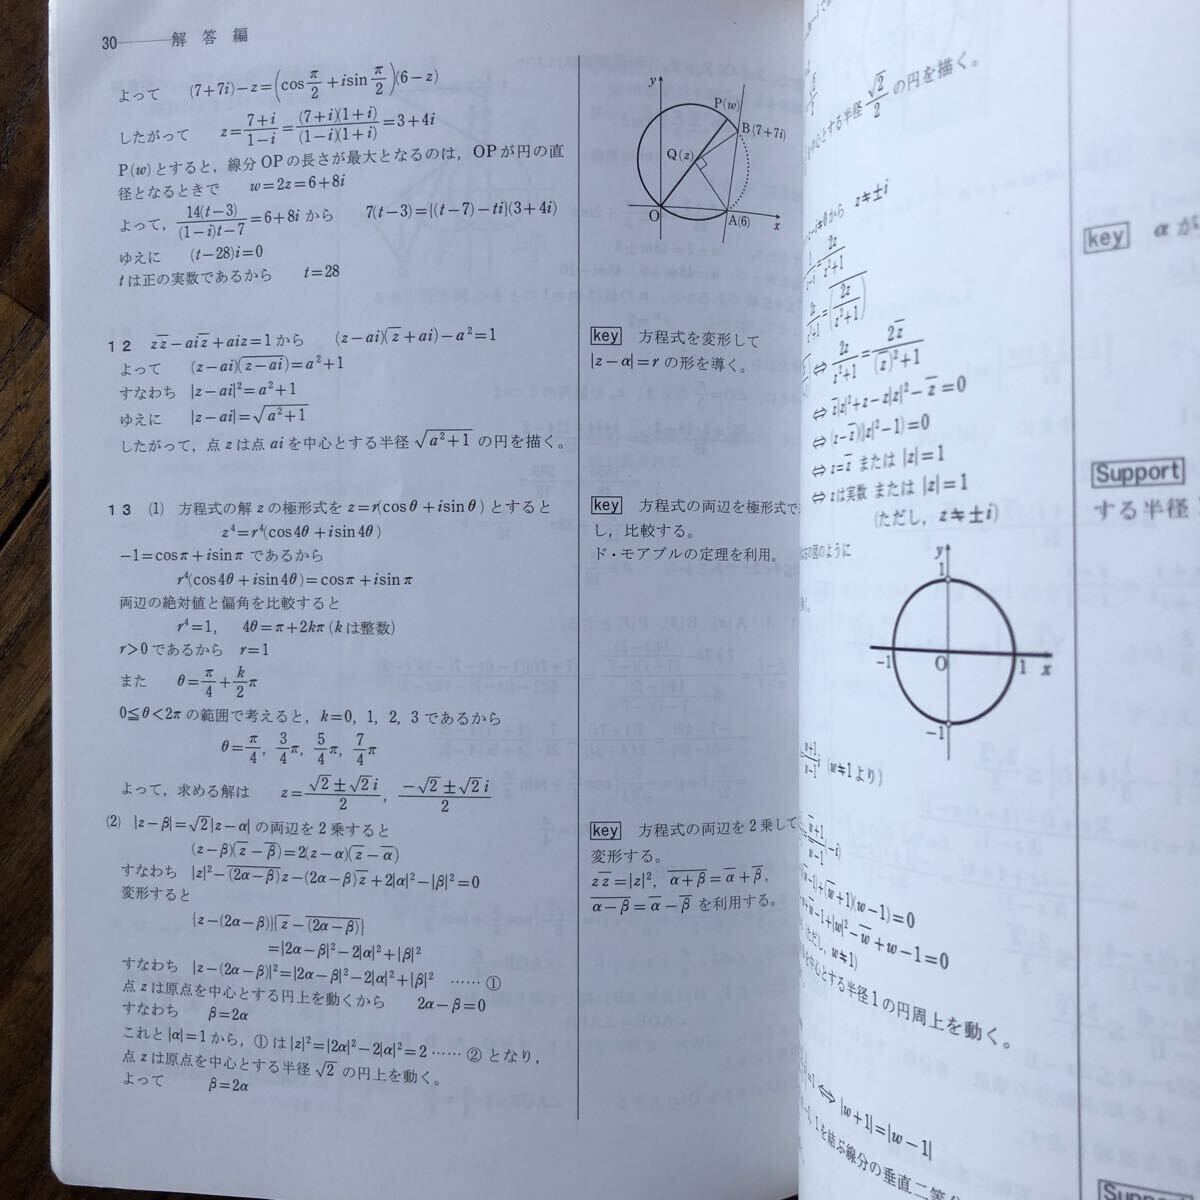 30 解答編
よって (7+7i)-z=(cos π/2 + i sin π/2)(6-z)
したがって z=(7+i)/(1-i)=(7+i)(1+i)/((1-i)(1+i))=3+4i
P(w)とすると，線分OPの長さが最大となるのは，OPが円の直
径となるときで w=2z=6+8i
よって，14(t-3)/((1-i)t-7)=6+8i から 7(t-3)={(t-7)-ti}(3+4i)
ゆえに (t-28)i=0
tは正の実数であるから t=28
y
P(w)
B(7+7i)
Q(z)
O
A(6)
x
12 zz̅-aiz̅+aiz=1から (z-ai)(z̅+ai)-a²=1
よって (z-ai)(\overline{z-ai})=a²+1
すなわち |z-ai|²=a²+1
ゆえに |z-ai|=√(a²+1)
したがって，点zは点aiを中心とする半径√(a²+1)の円を描く。
key 方程式を変形して
|z-α|=r の形を導く。
13 (1) 方程式の解zの極形式を z=r(cosθ+isinθ)とすると
z⁴=r⁴(cos4θ+isin4θ)
-1=cosπ+isinπ であるから
r⁴(cos4θ+isin4θ)=cosπ+isinπ
両辺の絶対値と偏角を比較すると
r⁴=1, 4θ=π+2kπ (kは整数)
r>0であるから r=1
また θ=π/4+(k/2)π
0≦θ<2πの範囲で考えると，k=0, 1, 2, 3であるから
θ=π/4, 3/4 π, 5/4 π, 7/4 π
よって，求める解は z=(√2±√2i)/2, (-√2±√2i)/2
key 方程式の両辺を極形式で
し，比較する。
ド・モアブルの定理を利用。
(2) |z-β|=√2|z-α| の両辺を2乗すると
(z-β)(z̅-β̅)=2(z-α)(z̅-α̅)
すなわち |z|²-\overline{(2α-β)}z-(2α-β)z̅+2|α|²-|β|²=0
変形すると
{z-(2α-β)}{z̅-\overline{(2α-β)}}
=|2α-β|²-2|α|²+|β|²
すなわち |z-(2α-β)|²=|2α-β|²-2|α|²+|β|² ……①
点zは原点を中心とする円上を動くから 2α-β=0
すなわち β=2α
これと|α|=1から，①は|z|²=|2α|²-2|α|²=2 ……②となり，
点zは原点を中心とする半径√2の円上を動く。
よって β=2α
key 方程式の両辺を2乗して
変形する。
zz̅=|z|², \overline{α+β}=α̅+β̅,
\overline{α-β}=α̅-β̅ を利用する。
中心とする半径 √2/2 の円を描く。
から z≠±i
=2z/(z²+1)
⇔ 2z/(z²+1)=2z̅/((z̅)²+1)
⇔ z̅|z|²+z-z|z|²-z̅=0
⇔ (z-z̅)(|z|²-1)=0
⇔ z=z̅ または |z|=1
⇔ zは実数 または |z|=1
(ただし，z≠±i)
の図のように
y
1
-1
O
1
x
-1
(w≠1より)
+(w̅+1)(w-1)=0
-1+|w|²-w̅+w-1=0
(ただし，w≠1)
を中心とする半径1の円周上を動く。
=1 ⇔ |w+1|=|w-1|
1を結ぶ線分の垂直二等分
key αが
Support
する半径
Support